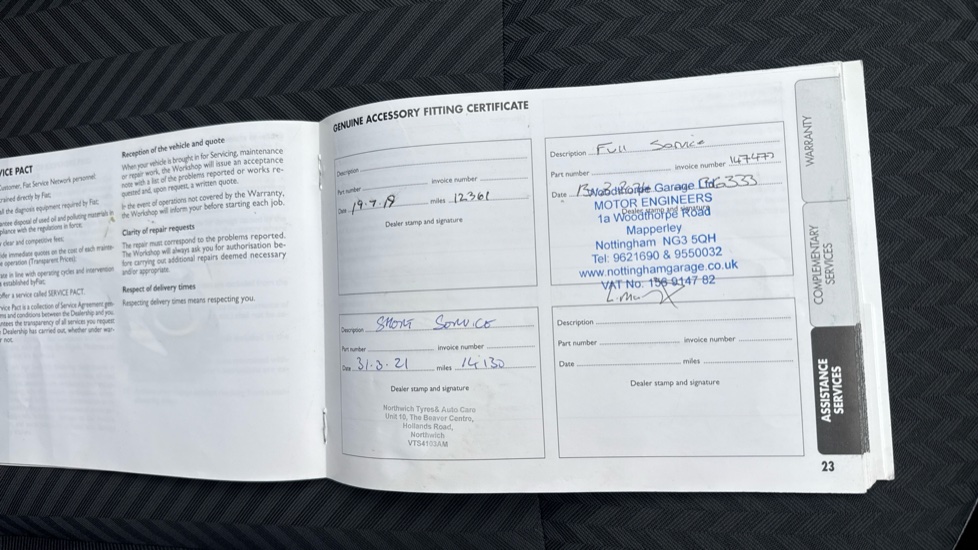 VICE PACT
Customer, Fiat Service Network personnel
trained directly by Fiat;
all the diagnosis equipment required by Fiat;
disposal of used oil and polluting materials in
pliance with the regulations in force;
clear and competitive fees;
immediate quotes on the cost of each
operation (Transparent Prices);
in line with operating cycles and intervention
established by Fiat;
offer a service called SERVICE PACT.
Service Pact is a collection of Service Agreement
and conditions between the Dealership and you
the transparency of all services you request
Dealership has carried out, whether under
not.
Reception of the vehicle and quote
When your vehicle is brought in for Servicing, maintenance
or repair work, the Workshop will issue an acceptance
note with a list of the problems reported or works re-
quested and, upon request, a written quote.
In the event of operations not covered by the Warranty,
the Workshop will inform your before starting each job.
Clarity of repair requests
The repair must correspond to the problems reported.
The Workshop will always ask you for authorisation be-
fore carrying out additional repairs deemed necessary
and/or appropriate.
Respect of delivery times
Respecting delivery times means respecting you.
GENUINE ACCESSORY FITTING CERTIFICATE
Description
Part number invoice number
Date 19.7.19 miles 12361
Dealer stamp and signature
Description Full Service
Part number invoice number 147477
Date
Dealer stamp and signature
Woodthorpe Garage Ltd
MOTOR ENGINEERS
1a Woodthorpe Road
Mapperley
Nottingham NG3 5QH
Tel: 9621690 & 9550032
www.nottinghamgarage.co.uk
VAT No: 156 9147 82
Description SHORT SERVICE
Part number invoice number
Date 31.3.21 miles 14130
Dealer stamp and signature
Northwich Tyres & Auto Care
Unit 10, The Beaver Centre,
Hollands Road,
Northwich
VTS4103AM
Description
Part number invoice number
Date miles
Dealer stamp and signature
WARRANTY
COMPLEMENTARY
SERVICES
ASSISTANCE
SERVICES
23